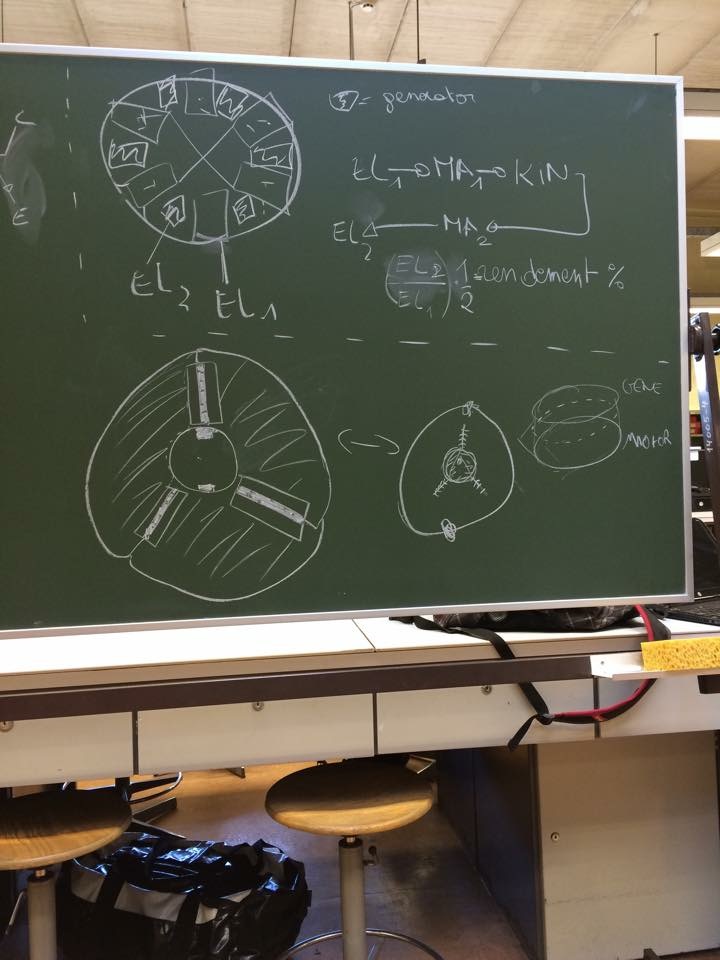 C
E
= generator
EL1 → MA1 → KIN
EL2 ← MA2
(EL2/EL1) · 1/2 = rendement %
EL2 EL1
GENE
MOTOR
14005-4